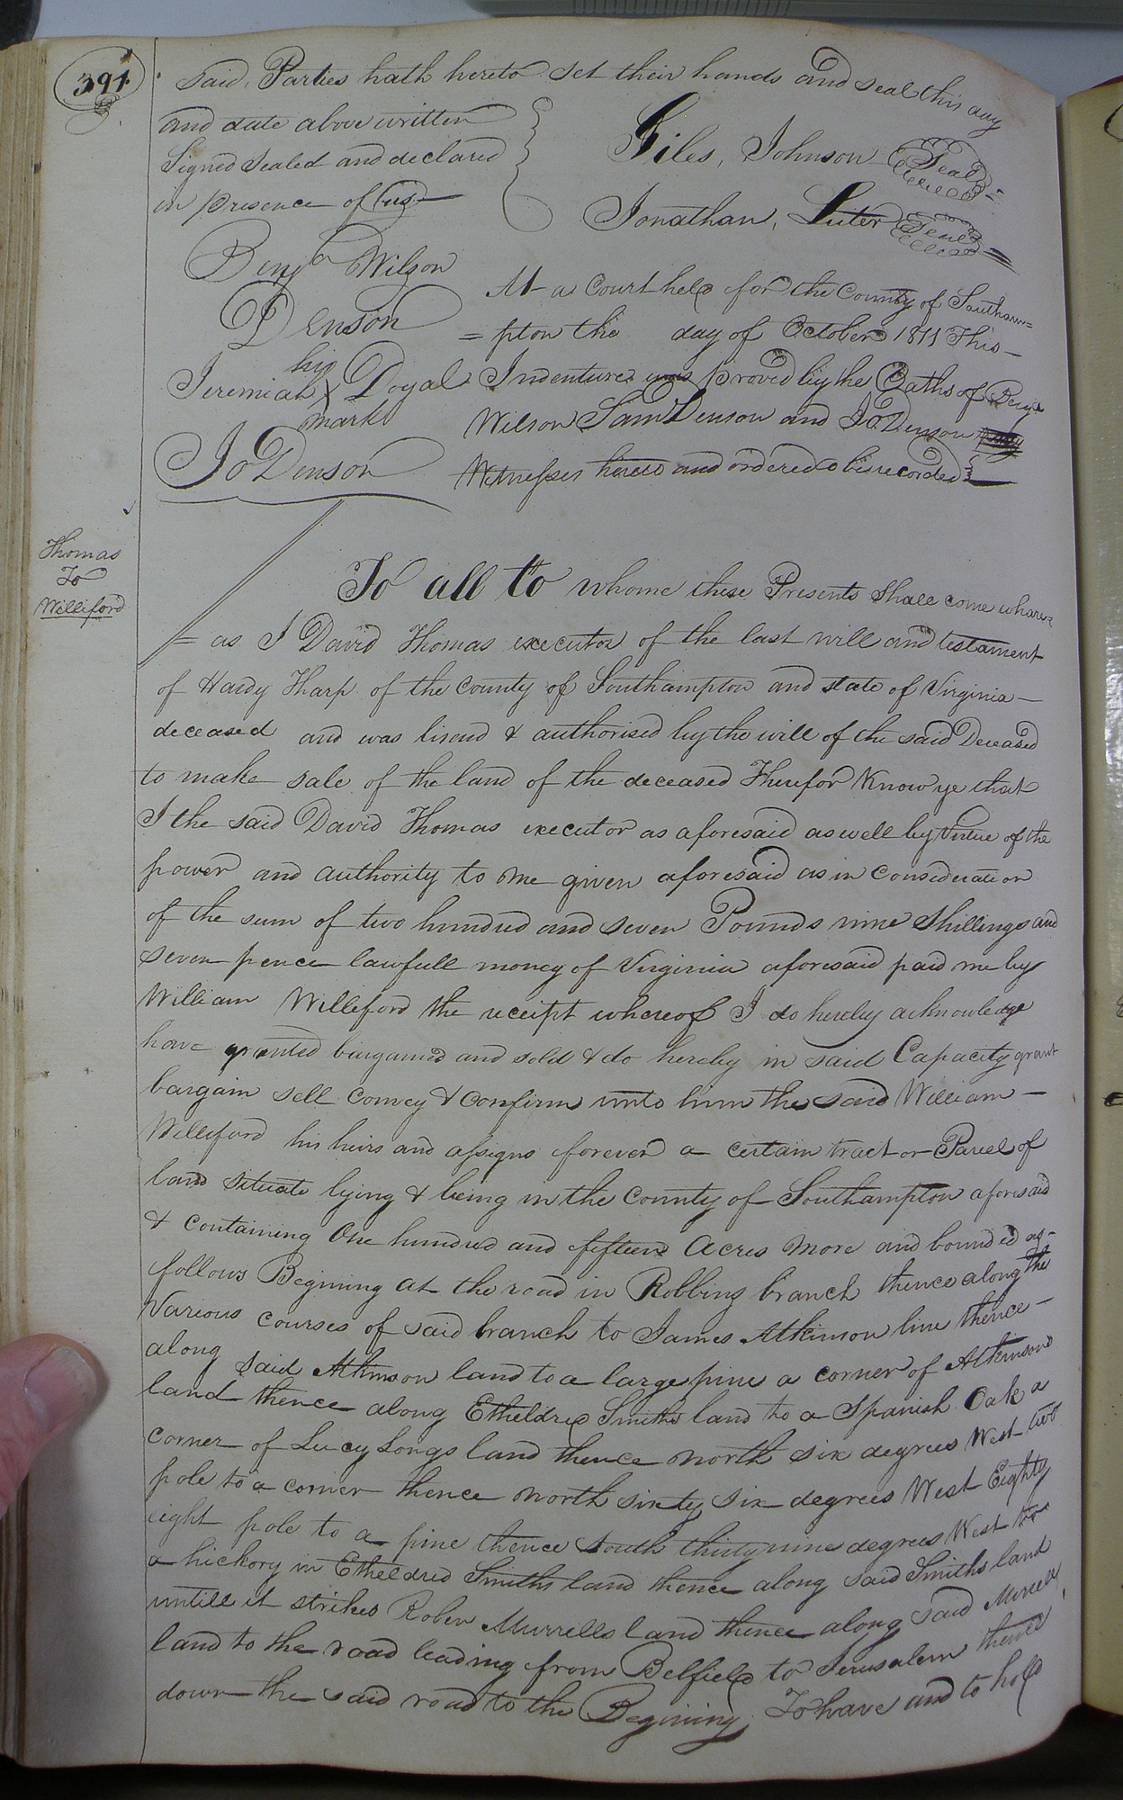 394
said, Parties hath hereto set their hands and seal this day
and date above written
Signed Sealed and declared
in presence of (us)
Giles, Johnson Seal
Jonathan, Luter Seal
Benja Wilson
Denson
his
Jeremiah X Doyal
mark
Jo Denson
At a Court held for the County of Southam=
=pton the day of October 1811 This
Indenture was proved by the Oaths of Benja
Wilson Saml Denson and Jo Denson
Witnesses hereto and ordered to be recorded
Thomas
To
Williford
To all to whome these Presents shall come where
=as I David Thomas executor of the last will and testament
of Hardy Tharp of the County of Southampton and state of Virginia
deceased and was & authorised by the will of the said Deceased
to make sale of the land of the deceased Therefor Know ye that
I the said David Thomas executor as aforesaid as well by Virtue of the
power and authority to me given aforesaid as in Consideration
of the sum of two hundred and seven Pounds nine Shillings and
seven pence lawfull money of Virginia aforesaid paid me by
William Williford the receipt whereof I do hereby acknowledge
have granted bargained and sold & do hereby in said Capacity grant
bargain sell convey & confirm unto him the said William
Williford his heirs and assigns forever a certain tract or Parcel of
land situate lying & being in the County of Southampton aforesaid
& containing One hundred and fifteen Acres more and bounded as
follows Begining at the road in Robbins branch thence along the
Various courses of said branch to James Atkinson line thence
along said Atkinson land to a large pine a corner of Atkinsons
land thence along Etheldred Smiths land to a Spanish Oak a
corner of Lucy Longs land thence north six degrees West two
pole to a corner thence north sixty six degrees West Eighty
eight pole to a pine thence South thirty nine degrees West to
a hickory in Etheldred Smiths land thence along said Smiths land
untill it strikes Roben Murrells land thence along said Murrells
land to the road leading from Belfield to Jerusalem thence
down the said road to the Begining, To have and to hold